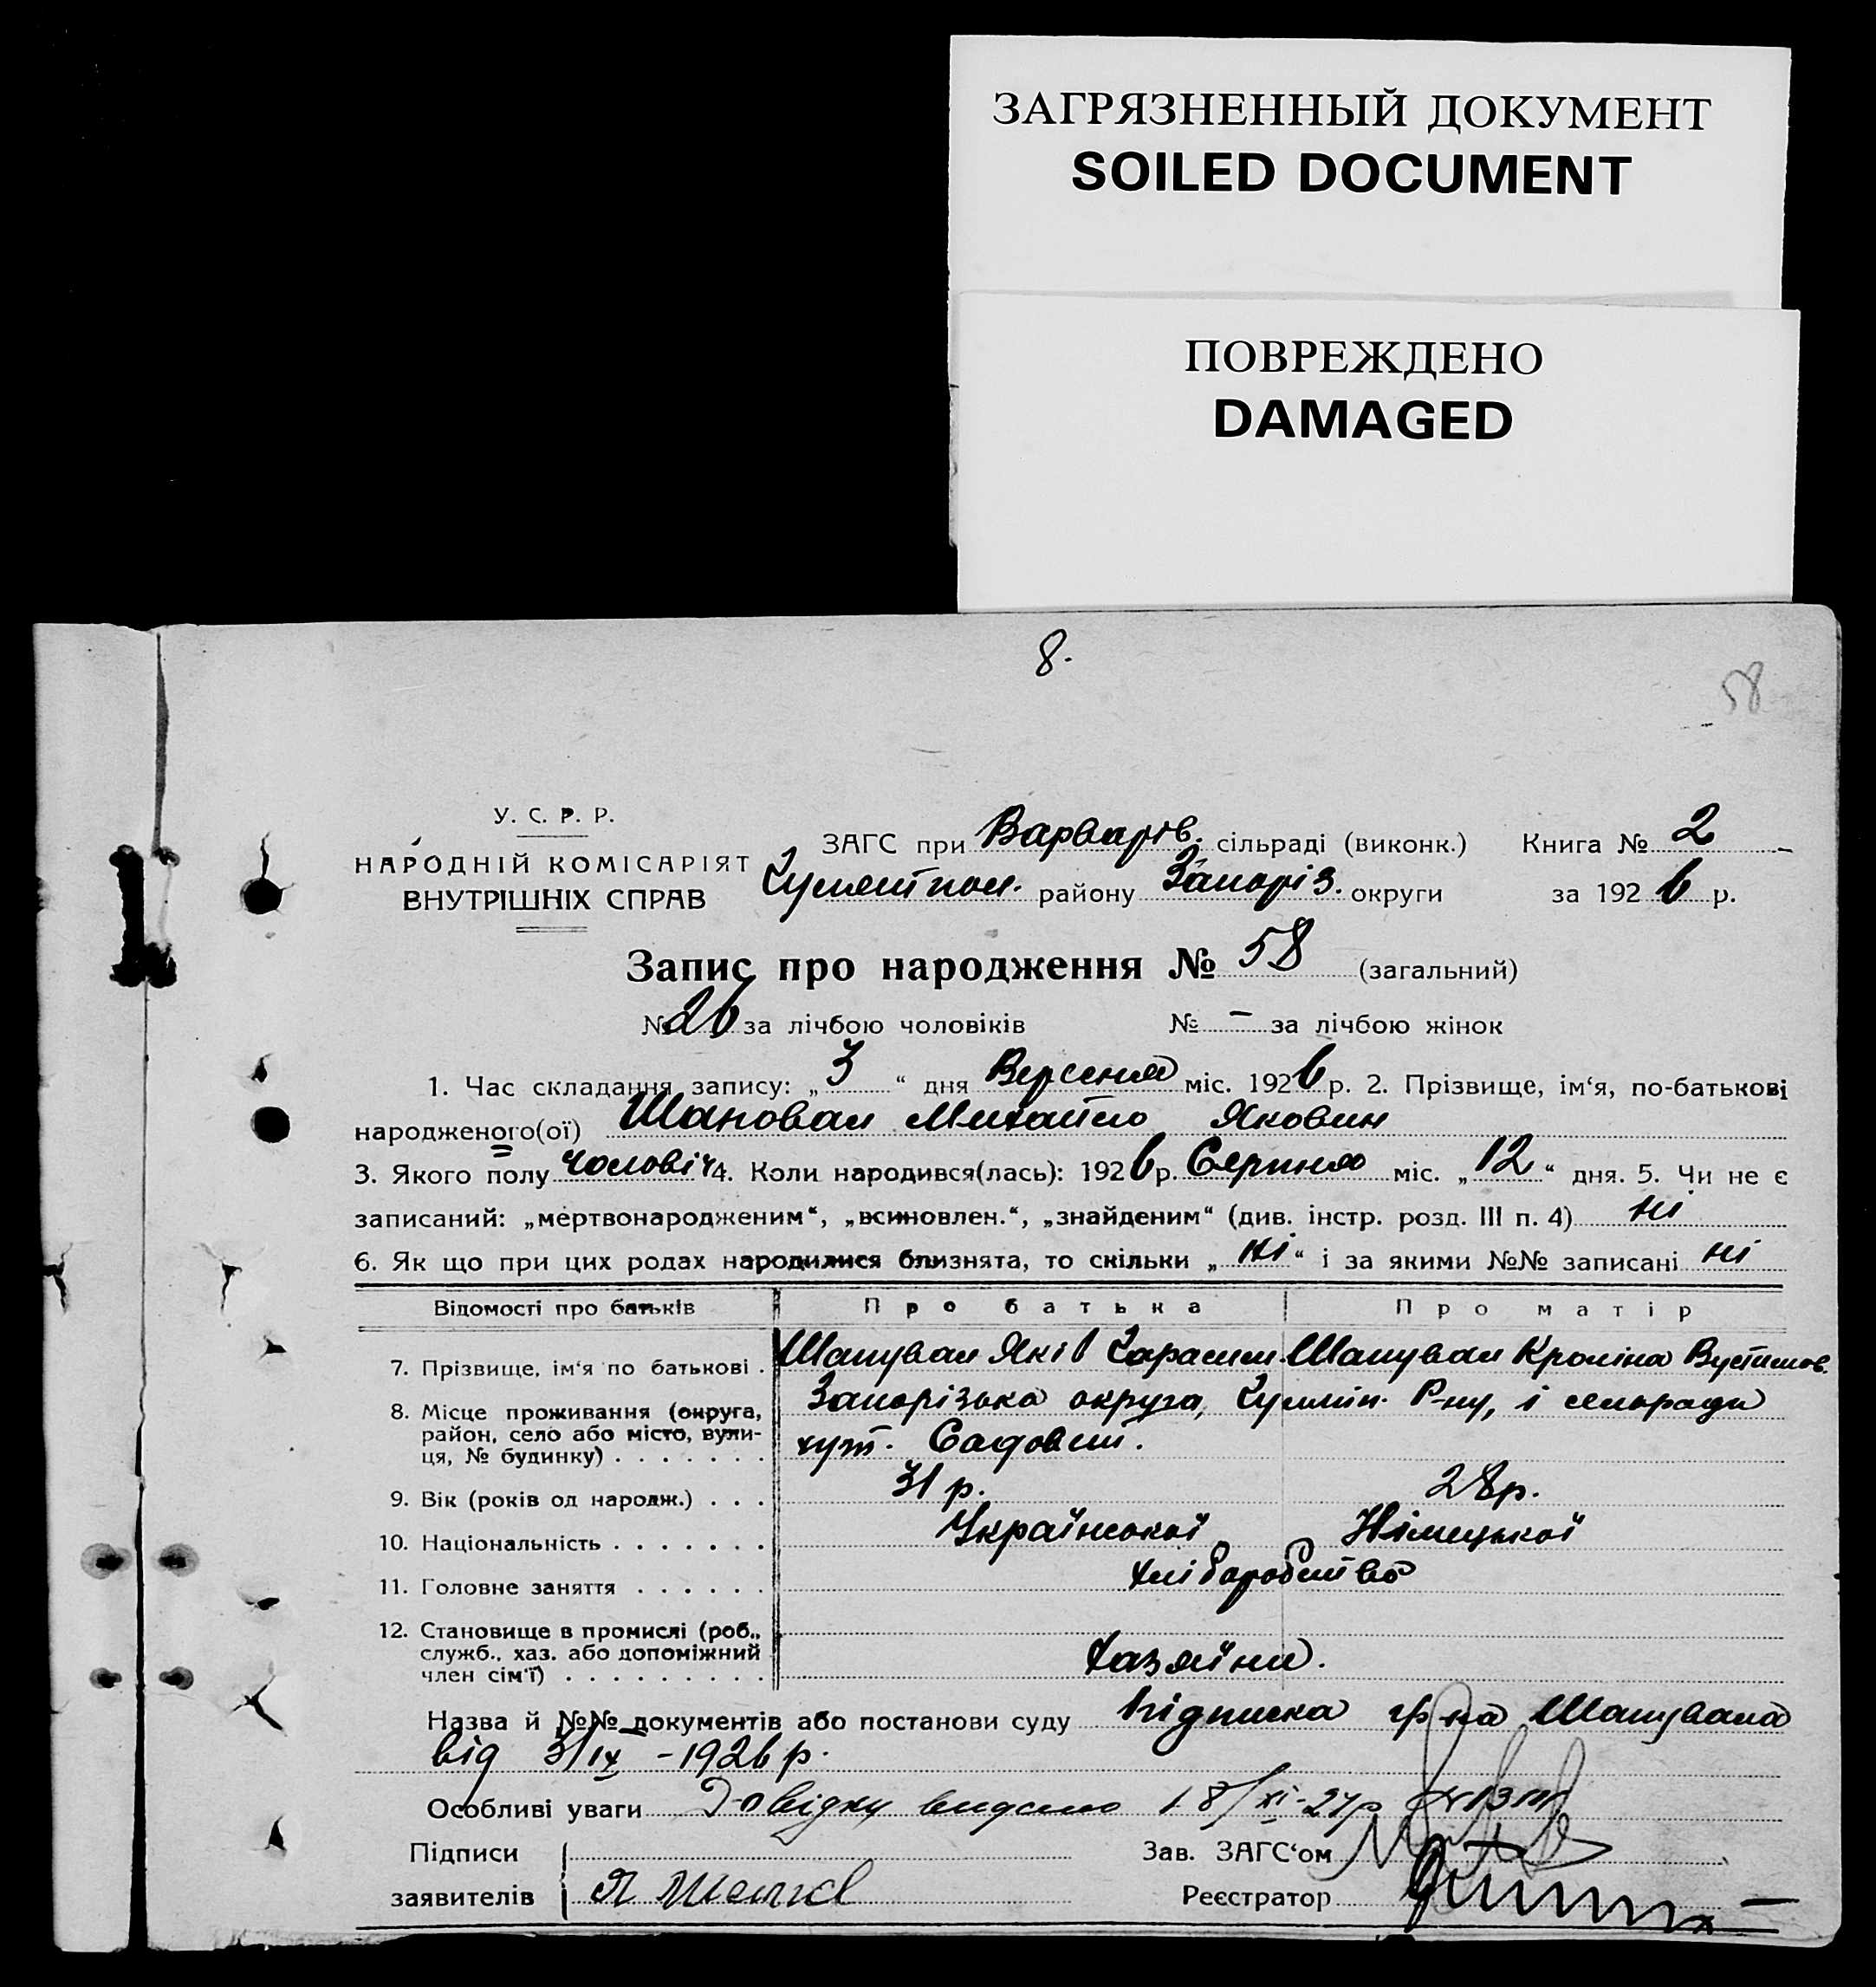 ЗАГРЯЗНЕННЫЙ ДОКУМЕНТ
SOILED DOCUMENT
ПОВРЕЖДЕНО
DAMAGED
8.
58
У. С. Р. Р.
НАРОДНІЙ КОМІСАРІЯТ
ВНУТРІШНІХ СПРАВ
ЗАГС при Варварів. сільраді (виконк.) Книга № 2
району Запоріз. округи за 1926 р.
Запис про народження № 58 (загальний)
№ 26 за лічбою чоловіків № – за лічбою жінок
1. Час складання запису: „3“ дня Вересня міс. 1926 р. 2. Прізвище, ім‘я, по-батькові
народженого(ої) Шаповал Михайло Яковин
3. Якого полу чоловіч 4. Коли народився(лась): 1926 р. Серпня міс. „12“ дня. 5. Чи не є
записаний: „мертвонародженим“, „всиновлен.“, „знайденим“ (див. інстр. розд. III п. 4) ні
6. Як що при цих родах народилися близнята, то скільки „ні“ і за якими №№ записані ні
Відомості про батьків Про батька Про матір
7. Прізвище, ім‘я по батькові . Шапувал Яків Харасим. Шапувал Кроліна Вустимов.
8. Місце проживання (округа, район, село або місто, вулиця, № будинку) . . . . . . . Запорізька округа, Р-ну, і сельради
хут. Садовий.
9. Вік (років од народж.) . . . 31 р. 28 р.
10. Національність . . . . . . . Української Німецької
11. Головне заняття . . . . . . хліборобство
12. Становище в промислі (роб., служб., хаз. або допоміжний член сім‘ї) . . . . . . . . . Хазяйни.
Назва й №№ документів або постанови суду Підписка гр-на Шапувала
від 3/IX – 1926 р.
Особливі уваги Довідку видано 18/XI-27р
Підписи Зав. ЗАГС‘ом
заявителів Я Реєстратор